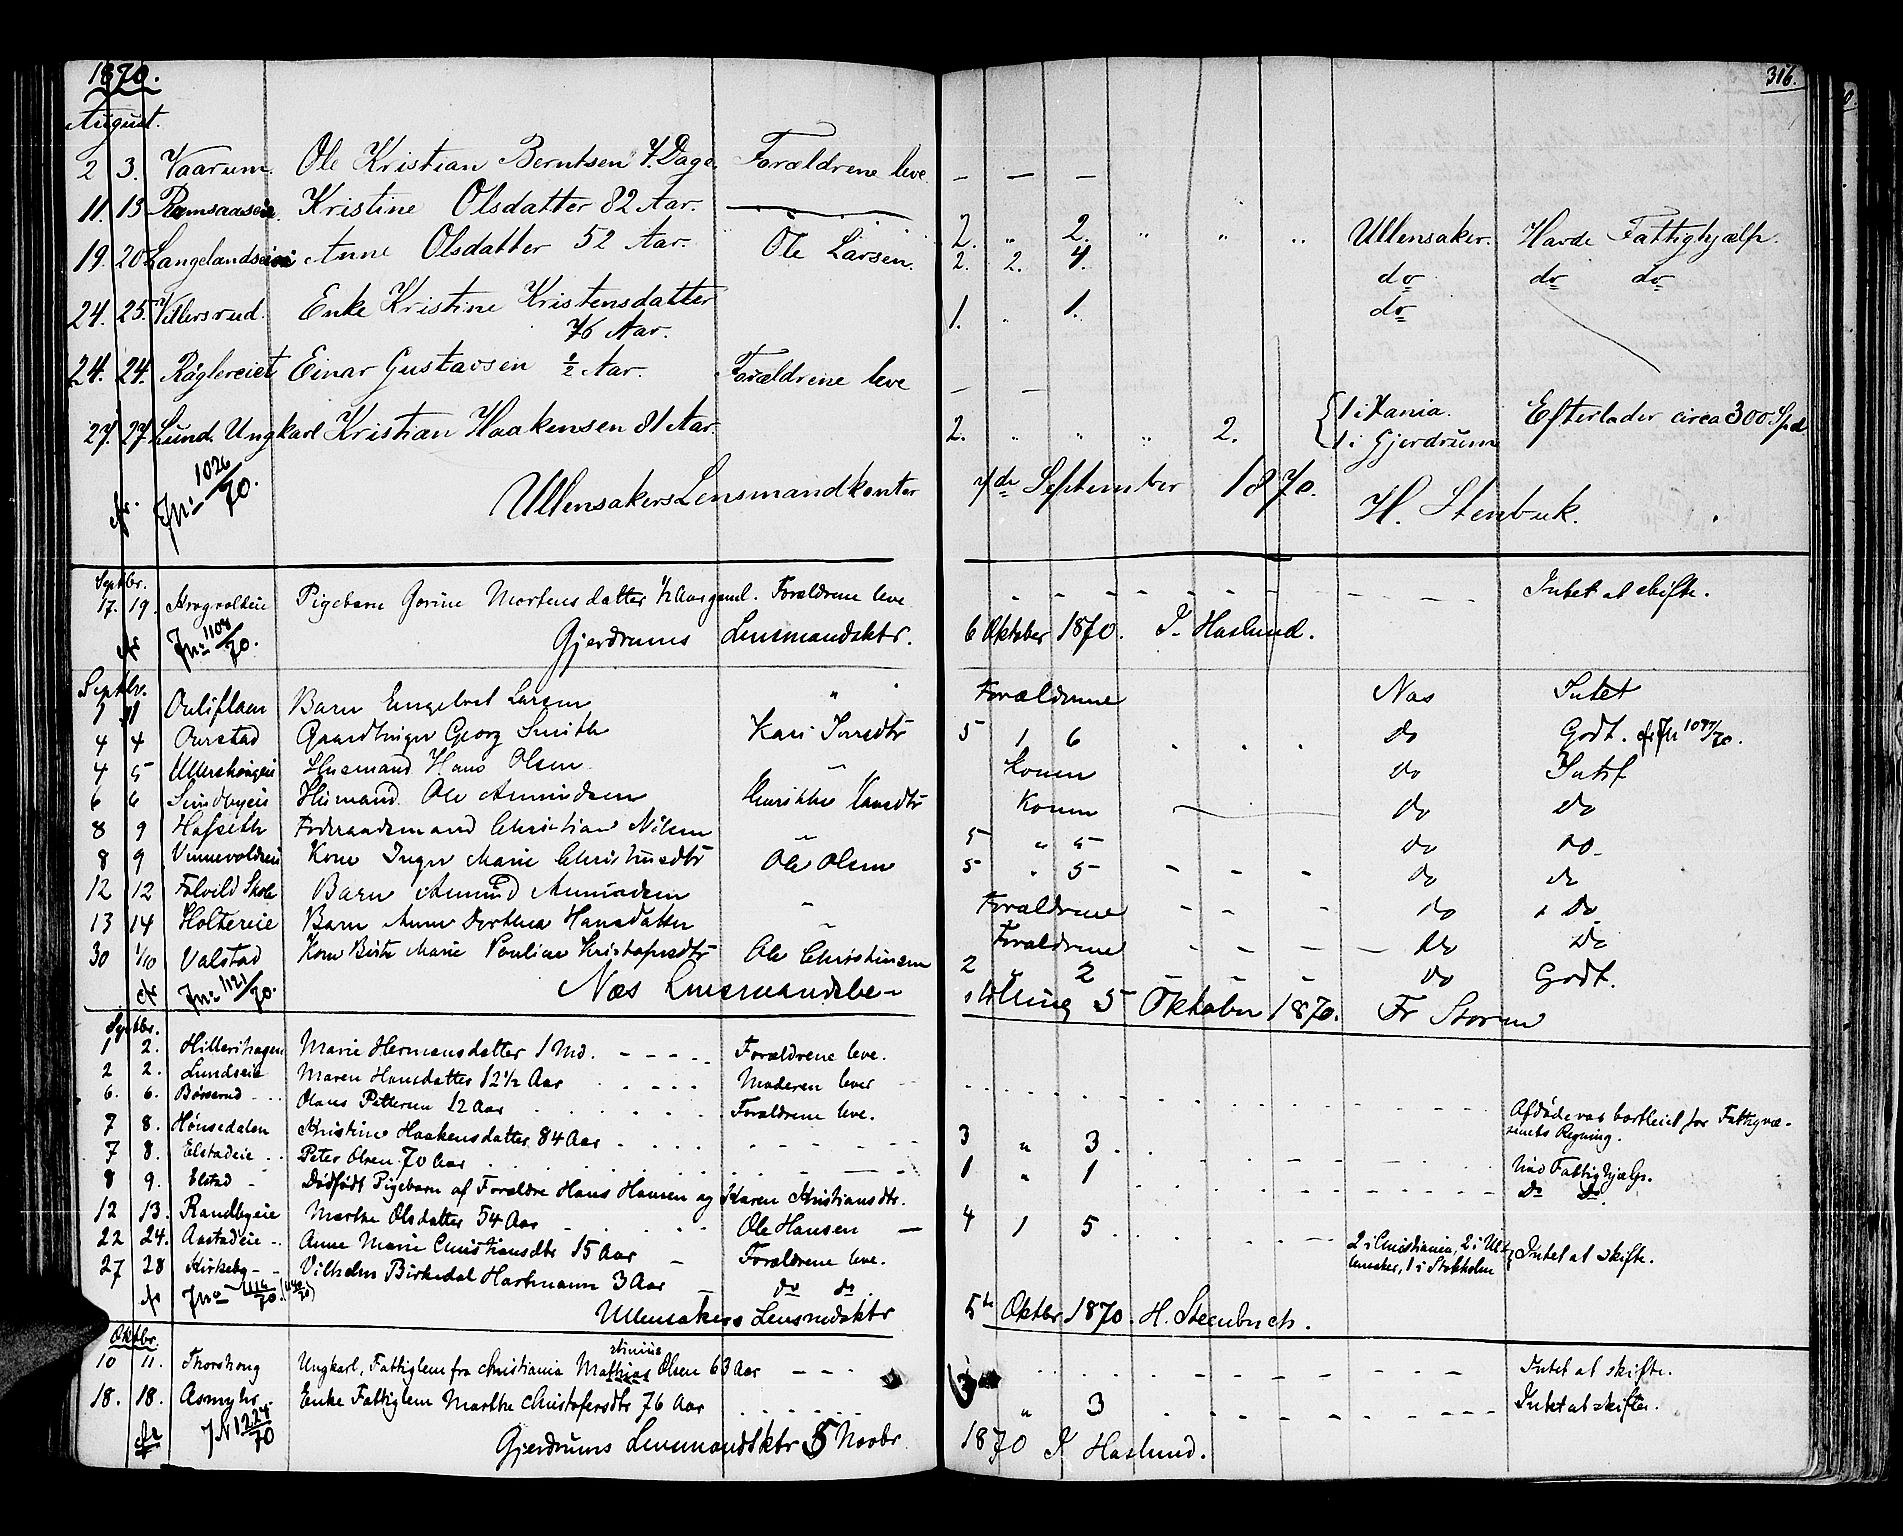 1870.
316.
August.
2 3. Vaarum. Ole Kristian Berntsen 7. Dage Forældrene leve. — — —
11. 13 Ramsaaseie. Kristine Olsdatter 82 Aar. —— 2. " 2. " " " Ullensaker. Havde Fattighjælp.
19. 20 Langelandseie Anne Olsdatter 52 Aar. Ole Larsen. 2. 2. 4. do do do
24. 25. Villersrud. Enke Kristine Kristensdatter 1. " 1. do
76 Aar.
24. 24. Röglereiet Einar Gustavsen ½ Aar. Forældrene leve — —
27. 27. Lund. Ungkarl Kristian Haakensen 81 Aar. 2. " " " 2. 1 i Xania. Efterlader circa 300 Spd
1 i Gjerdrum
cfr. Jnr 1026/70. Ullensakers Lensmandkontor 7de September 1870. H. Stenbuk.
Septbr.
17. 19. Pigebarn Gorine Mortensdatter ½ Aar gaml. Forældrene leve Intet at skifte.
cfr Jnr 1108/70. Gjerdrums Lensmandsktr. 6 Oktober 1870. Haslund.
Septbr.
Barn Engelbret Larsen " Forældrene Nas Intet
4 4 Ourstad Gaardbruger Georg Smith Kari 5 1 6 do Godt. cfr Jn 1097/70.
4 5 Husmand Hans Olsen " Konen do Intet
6 6 Sundbyeie Husmand Ole Amundsen Konen do do
8 9 Hofseth Føderaadsmand Christian Nilsen " 5 " 5 do do
8 9 Kone Inger Marie Ole Olsen 5 " 5 - - - do do
12 12 Folvild Skole Barn Amund Amundsen " Forældrene - - - do do
13 14 Holtereie Barn Anne Dorthea Hansdatter " Forældrene - - - do do
30 1/10 Valstad Kone Birthe Marie Pouline Kristofersdtr Ole Christiansen 2 2 - - - do Godt.
cfr Jnr 1121/70. Næs Lensmandsbestilling 5 Oktober 1870. Fr Storm
Septbr.
1 2. Marie Hermansdatter 1 Md. Forældrene leve.
2 2. Lundseie Maren Hansdatter 12½ Aar Moderen lever
6. 6. Børserud Olaus Pettersen 12 Aar Forældrene leve.
7 8. Hønsedalen Kristine Haakensdatter 84 Aar 3 " 3 Afdöde var bortleiet for Fattigvæ-
senets Regning.
7 8. Elstadeie Peter Olsen 70 Aar 1 " 1 Fattighjælp.
8 9. Elstad Dødfødt Pigebarn af Forældre Hans Hansen og Karen Kristiansdtr. do do
12 13. Randbyeie Marthe Olsdatter 54 Aar Ole Hansen — 4 1 5
22 24. Aastadeie Anne Marie Christiansdtr 15 Aar Forældrene leve. 2 i Christiania, 2 i Ul-
lensaker, 1 i Stokholm Intet at skifte.
27 28 Kirkeby Vilhelm Birkedal Hartmann 3 Aar do do
cfr Jno 1116/70. Ullensakers Lensmdsktr 5te Oktbr 1870. H. Steenbuch.
Oktbr.
10 11. Thorshoug Ungkarl, Fattiglem fra Christiania Mathias Olsen 63 Aar Intet at skifte.
18. 18. Asmyhr Enke Fattiglem Marthe Christofersdtr 76 Aar " 3 Intet at skifte.
cfr JN 1224/70 Gjerdrums Lensmandsktr 5 Novbr 1870 Haslund.